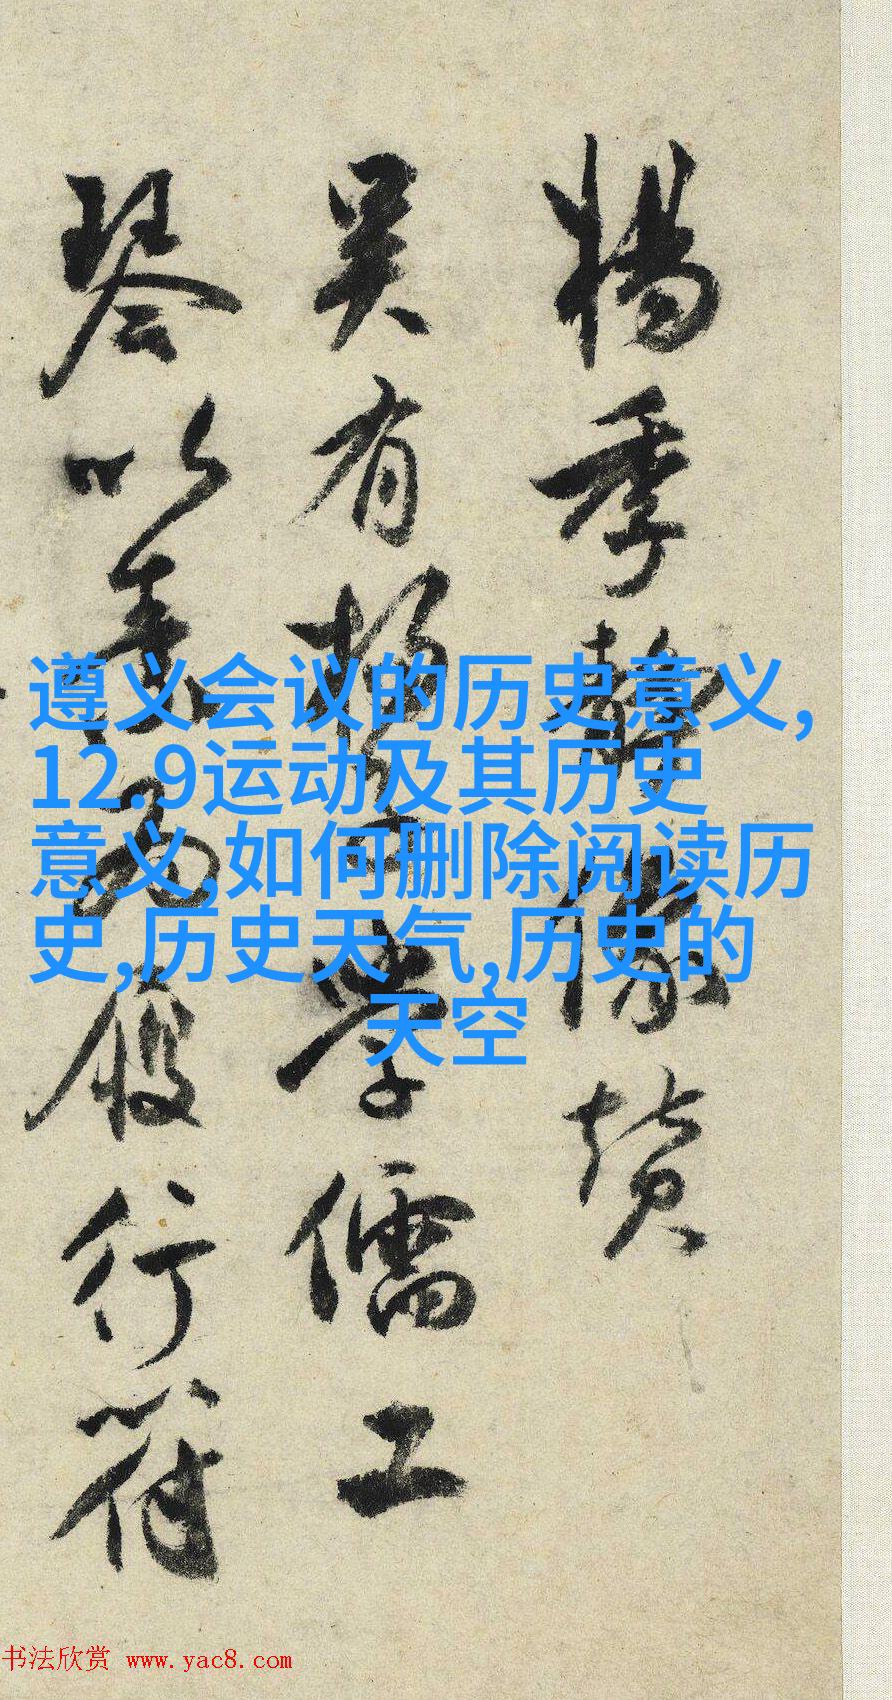 楊季靜像贊
吴有楊子學儒工
琴以素為履行符
遵义会议的历史意义,
12.9运动及其历史
意义,如何删除阅读历
史,历史天气,历史的
天空
书法欣赏 www.yac8.com